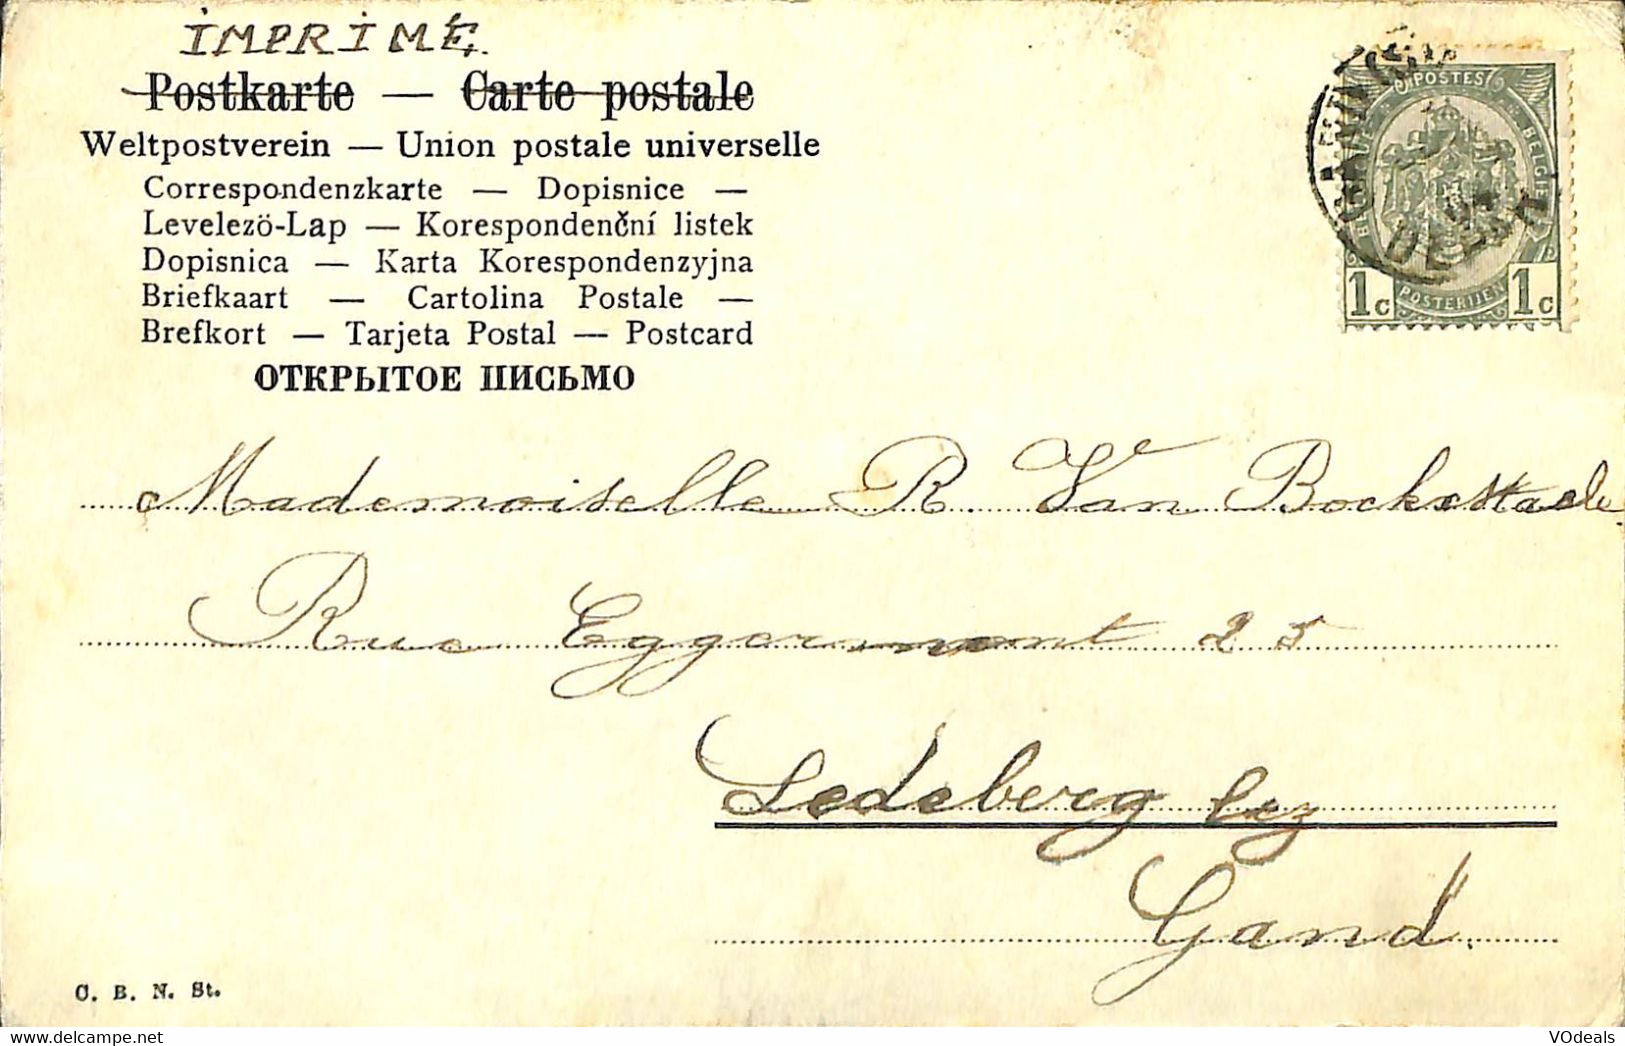 IMPRIMÉ.
Postkarte — Carte postale
Weltpostverein — Union postale universelle
Correspondenzkarte — Dopisnice —
Levelezö-Lap — Korespondenční listek
Dopisnica — Karta Korespondenzyjna
Briefkaart — Cartolina Postale —
Brefkort — Tarjeta Postal — Postcard
ОТКРЫТОЕ ПИСЬМО
POSTES
BELGIE
POSTERIJEN
1c 1c
GAND
DEPART
Mademoiselle R. Van Bockxstaele
Rue Eggermont 25
Ledeberg lez
Gand.
C. B. N. St.
VOdeals